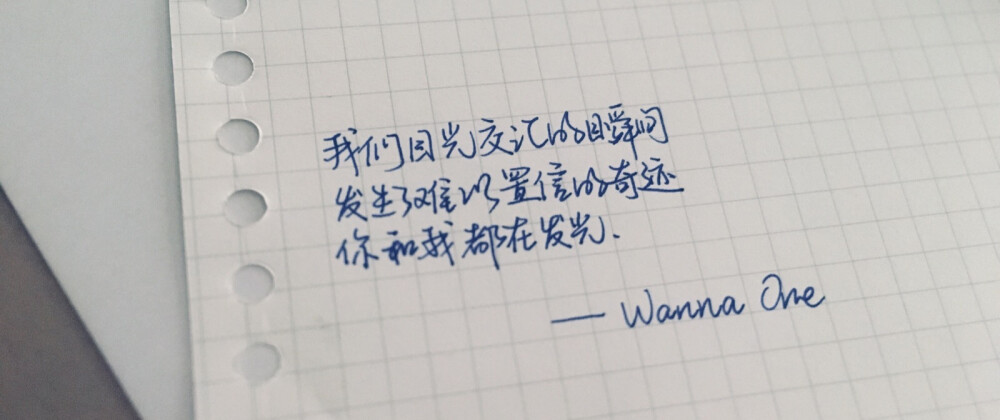 我们目光交汇的瞬间
发生了难以置信的奇迹
你和我都在发光.
— Wanna One